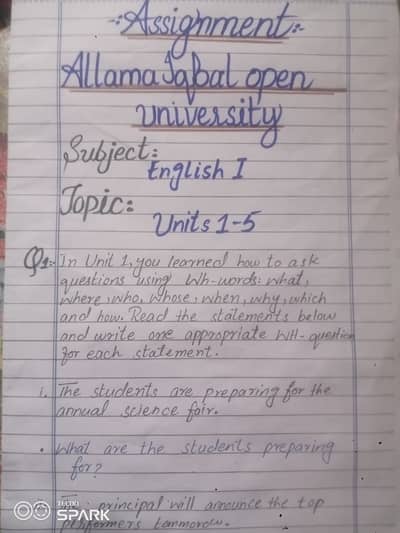 -: Assignment :-
Allama Iqbal open
university
Subject:
English I
Topic:
Units 1-5
Q1:- In Unit 1, you learned how to ask
questions using Wh-words: what,
where, who, whose, when, why, which
and how. Read the statements below
and write one appropriate WH-question
for each statement.
i. The students are preparing for the
annual science fair.
• What are the students preparing
for?
principal will announce the top
performers
SPARK